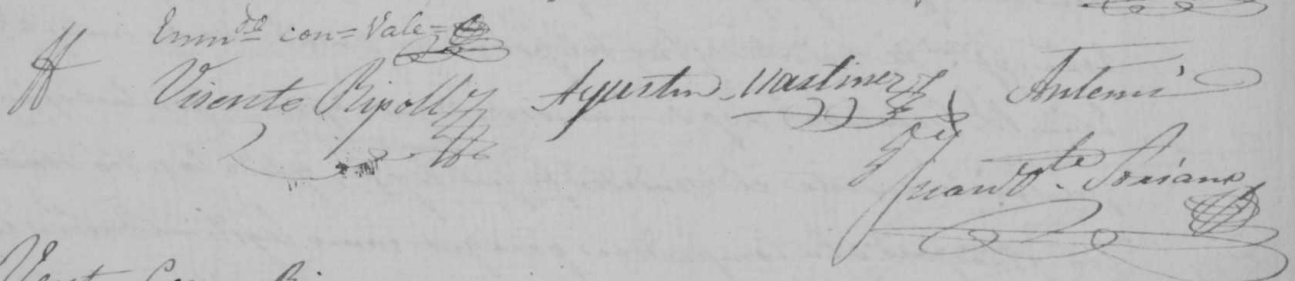 Enmdo con = Vale =
Vicente Ripoll Agustin Martinez Antemi
Juan Vte. Soriano